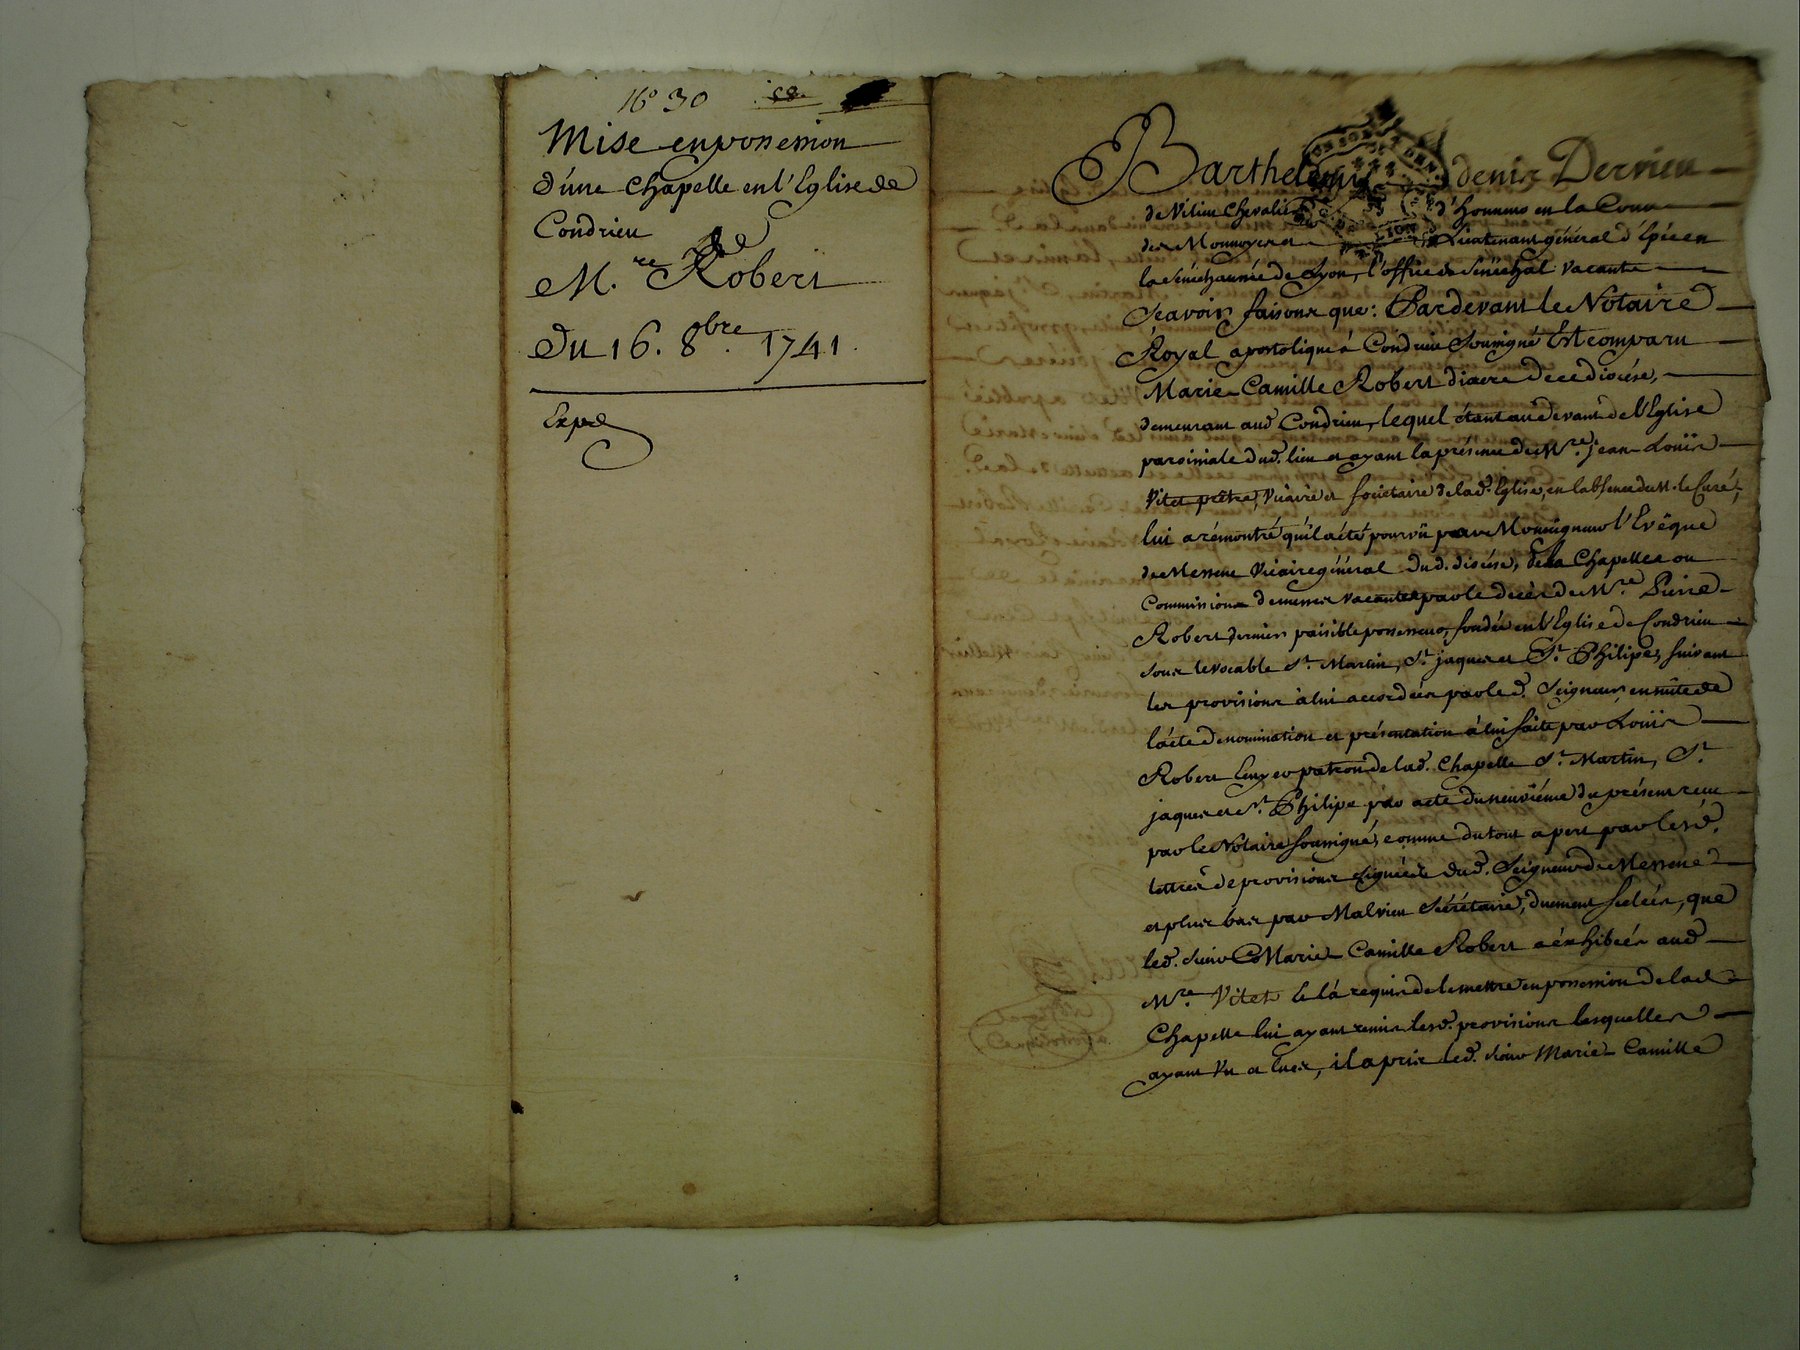 16° 30
Mise en possession
d'une Chapelle en l'Eglise de
Condrieu
M.re Robert
du 16. 8bre. 1741.
Exped
Barthelemi denis Derrieu
de Vilieu Chevalier d'honneur en la Cour
des Monnoyes et Lieutenant général d'Epée en
la Sénéchaussée de Lyon, l'office de Sénéchal vacant
Scavoir faisons que: Pardevant le Notaire
Royal apostolique à Condrieu Soussigné Est comparu
Marie Camille Robert diacre de ce diocése,
demeurant aud. Condrieu, lequel étant au devant de l'Eglise
paroissiale dud. lieu et ayant la présence de M.re jean Loüis
Vitet prêtre, Vicaire et societaire de lad. Eglise, en l'absence de M. le Curé,
lui a rémontré qu'il a été pourvû par Monseigneur l'Evêque
de Messene Vicaire général dud. diocése, de la Chapelle ou
Commission de messes vacante par le decès de M.re Pierre
Robert dernier paisible possesseur, fondée en l'Eglise de Condrieu
sous le vocable St. Martin, St. jaques et St. Philipe, suivant
les provisions à lui accordées par led. Seigneur ensuite de
l'acte de nomination et présentation à lui faite par Loüis
Robert patron de lad. Chapelle St. Martin, St.
jaques et St. Philipe par acte du neuviéme du présent receu
par le Notaire soussigné, comme du tout apert par lesd.
lettres de provisions signées dud. Seigneur de Messene
et plus bas par Malvieu Sécrétaire, duement scelées, que
led. sieur Marie Camille Robert a éxhibées aud.
M.re Vitet et l'a requis de le mettre en possession de lad.
Chapelle lui ayant remis lesd. provisions lesquelles
ayant vu et lues, il a pris led. sieur Marie Camille